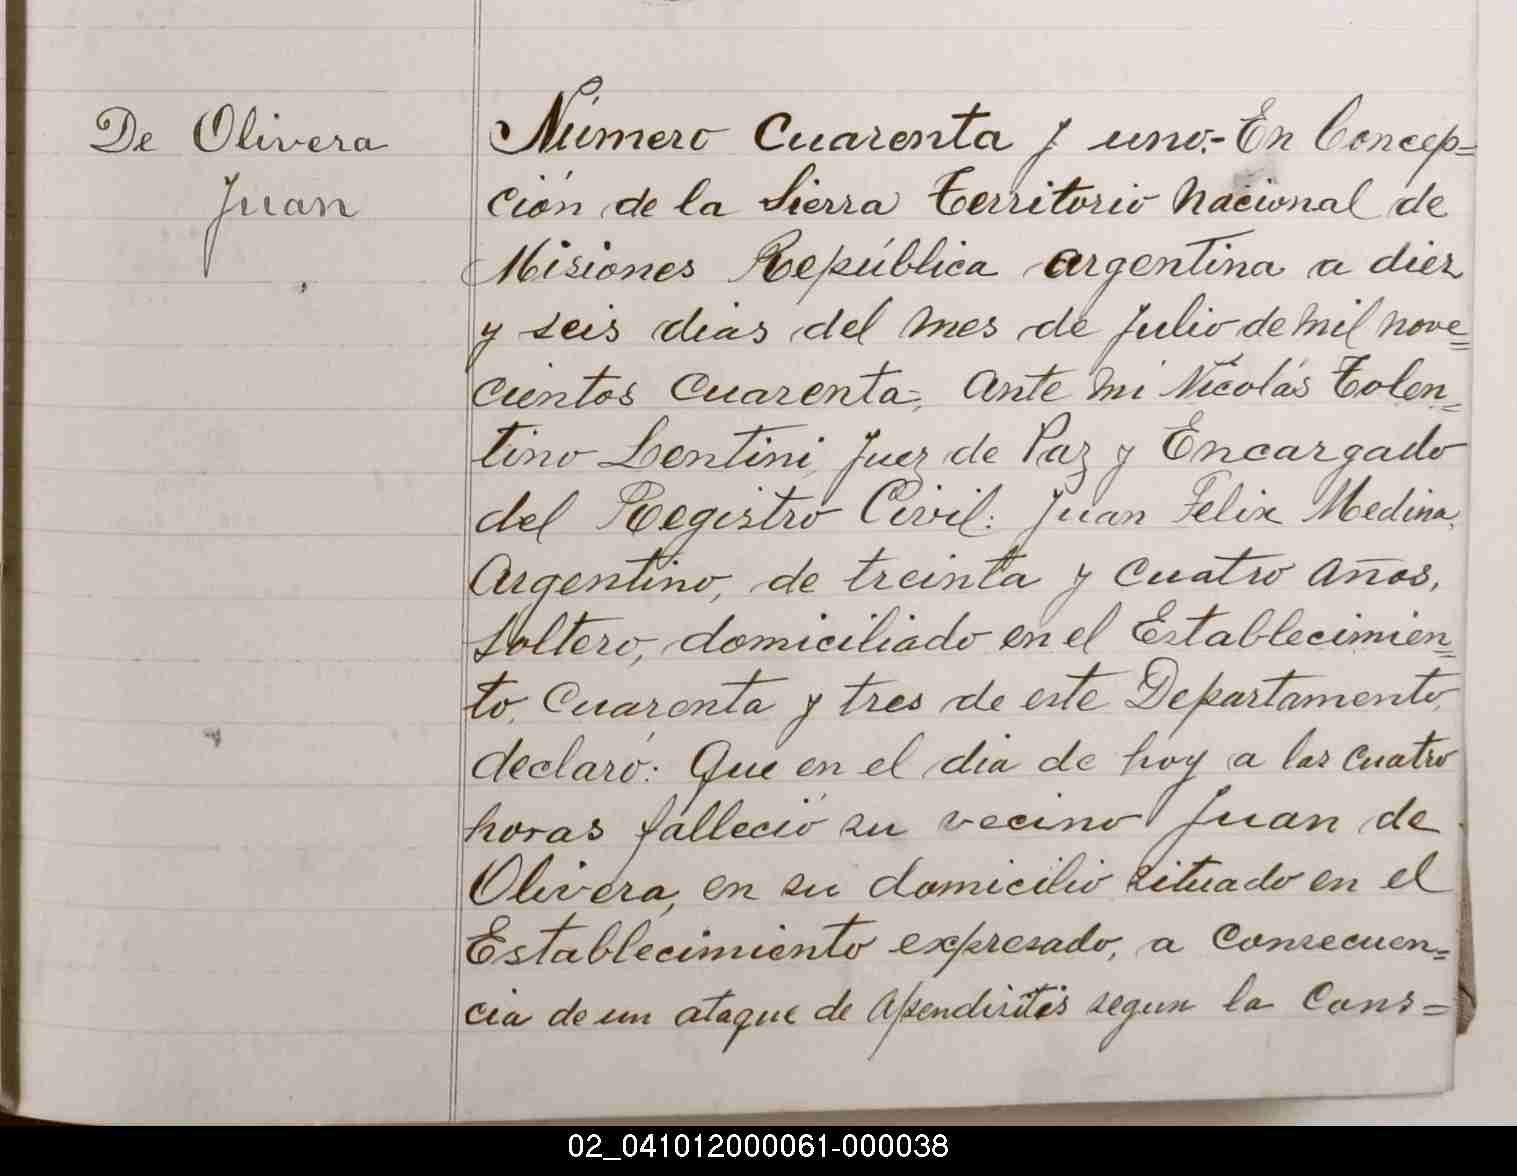 De Olivera
Juan
Número Cuarenta y uno.- En Concep=
ción de la Sierra Territorio Nacional de
Misiones República Argentina a diez
y seis dias del mes de Julio de mil nove=
cientos cuarenta, Ante mi Nicolás Tolen=
tino Lentini, Juez de Paz y Encargado
del Registro Civil: Juan Felix Medina,
Argentino, de treinta y cuatro años,
soltero, domiciliado en el Establecimien=
to, Cuarenta y tres de este Departamento,
declaró: Que en el dia de hoy a las cuatro
horas falleció su vecino Juan de
Olivera, en su domicilio situado en el
Establecimiento expresado, a consecuen=
cia de un ataque de Apendisitis segun la Cons=
02_041012000061-000038